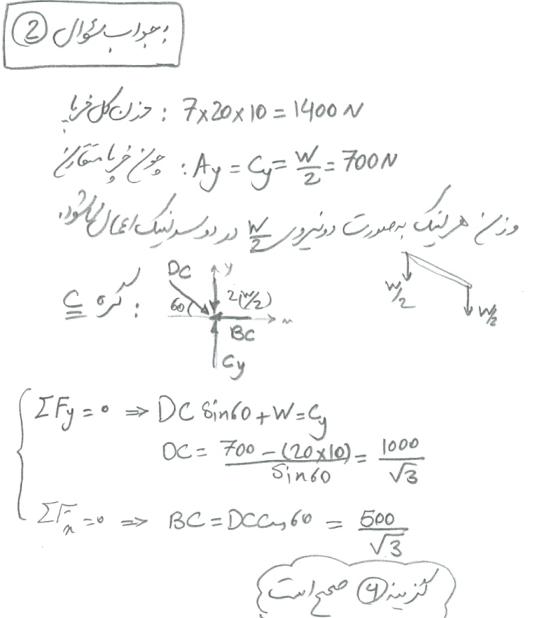 جواب سؤال 2
وزن کل خرپا : 7×20×10 = 1400 N
چون خرپا متقارن : Ay = Cy = W/2 = 700 N
وزن هر لینک به صورت دو نیروی W/2 در دو سر لینک اعمال می‌شود.
W/2
W/2
گره C :
DC
y
60
2(W/2)
x
BC
Cy
ΣFy = 0 ⇒ DC Sin60 + W = Cy
DC = 700 − (20×10) / Sin60 = 1000/√3
ΣFx = 0 ⇒ BC = DC Cos60 = 500/√3
گزینه 4 صحیح است